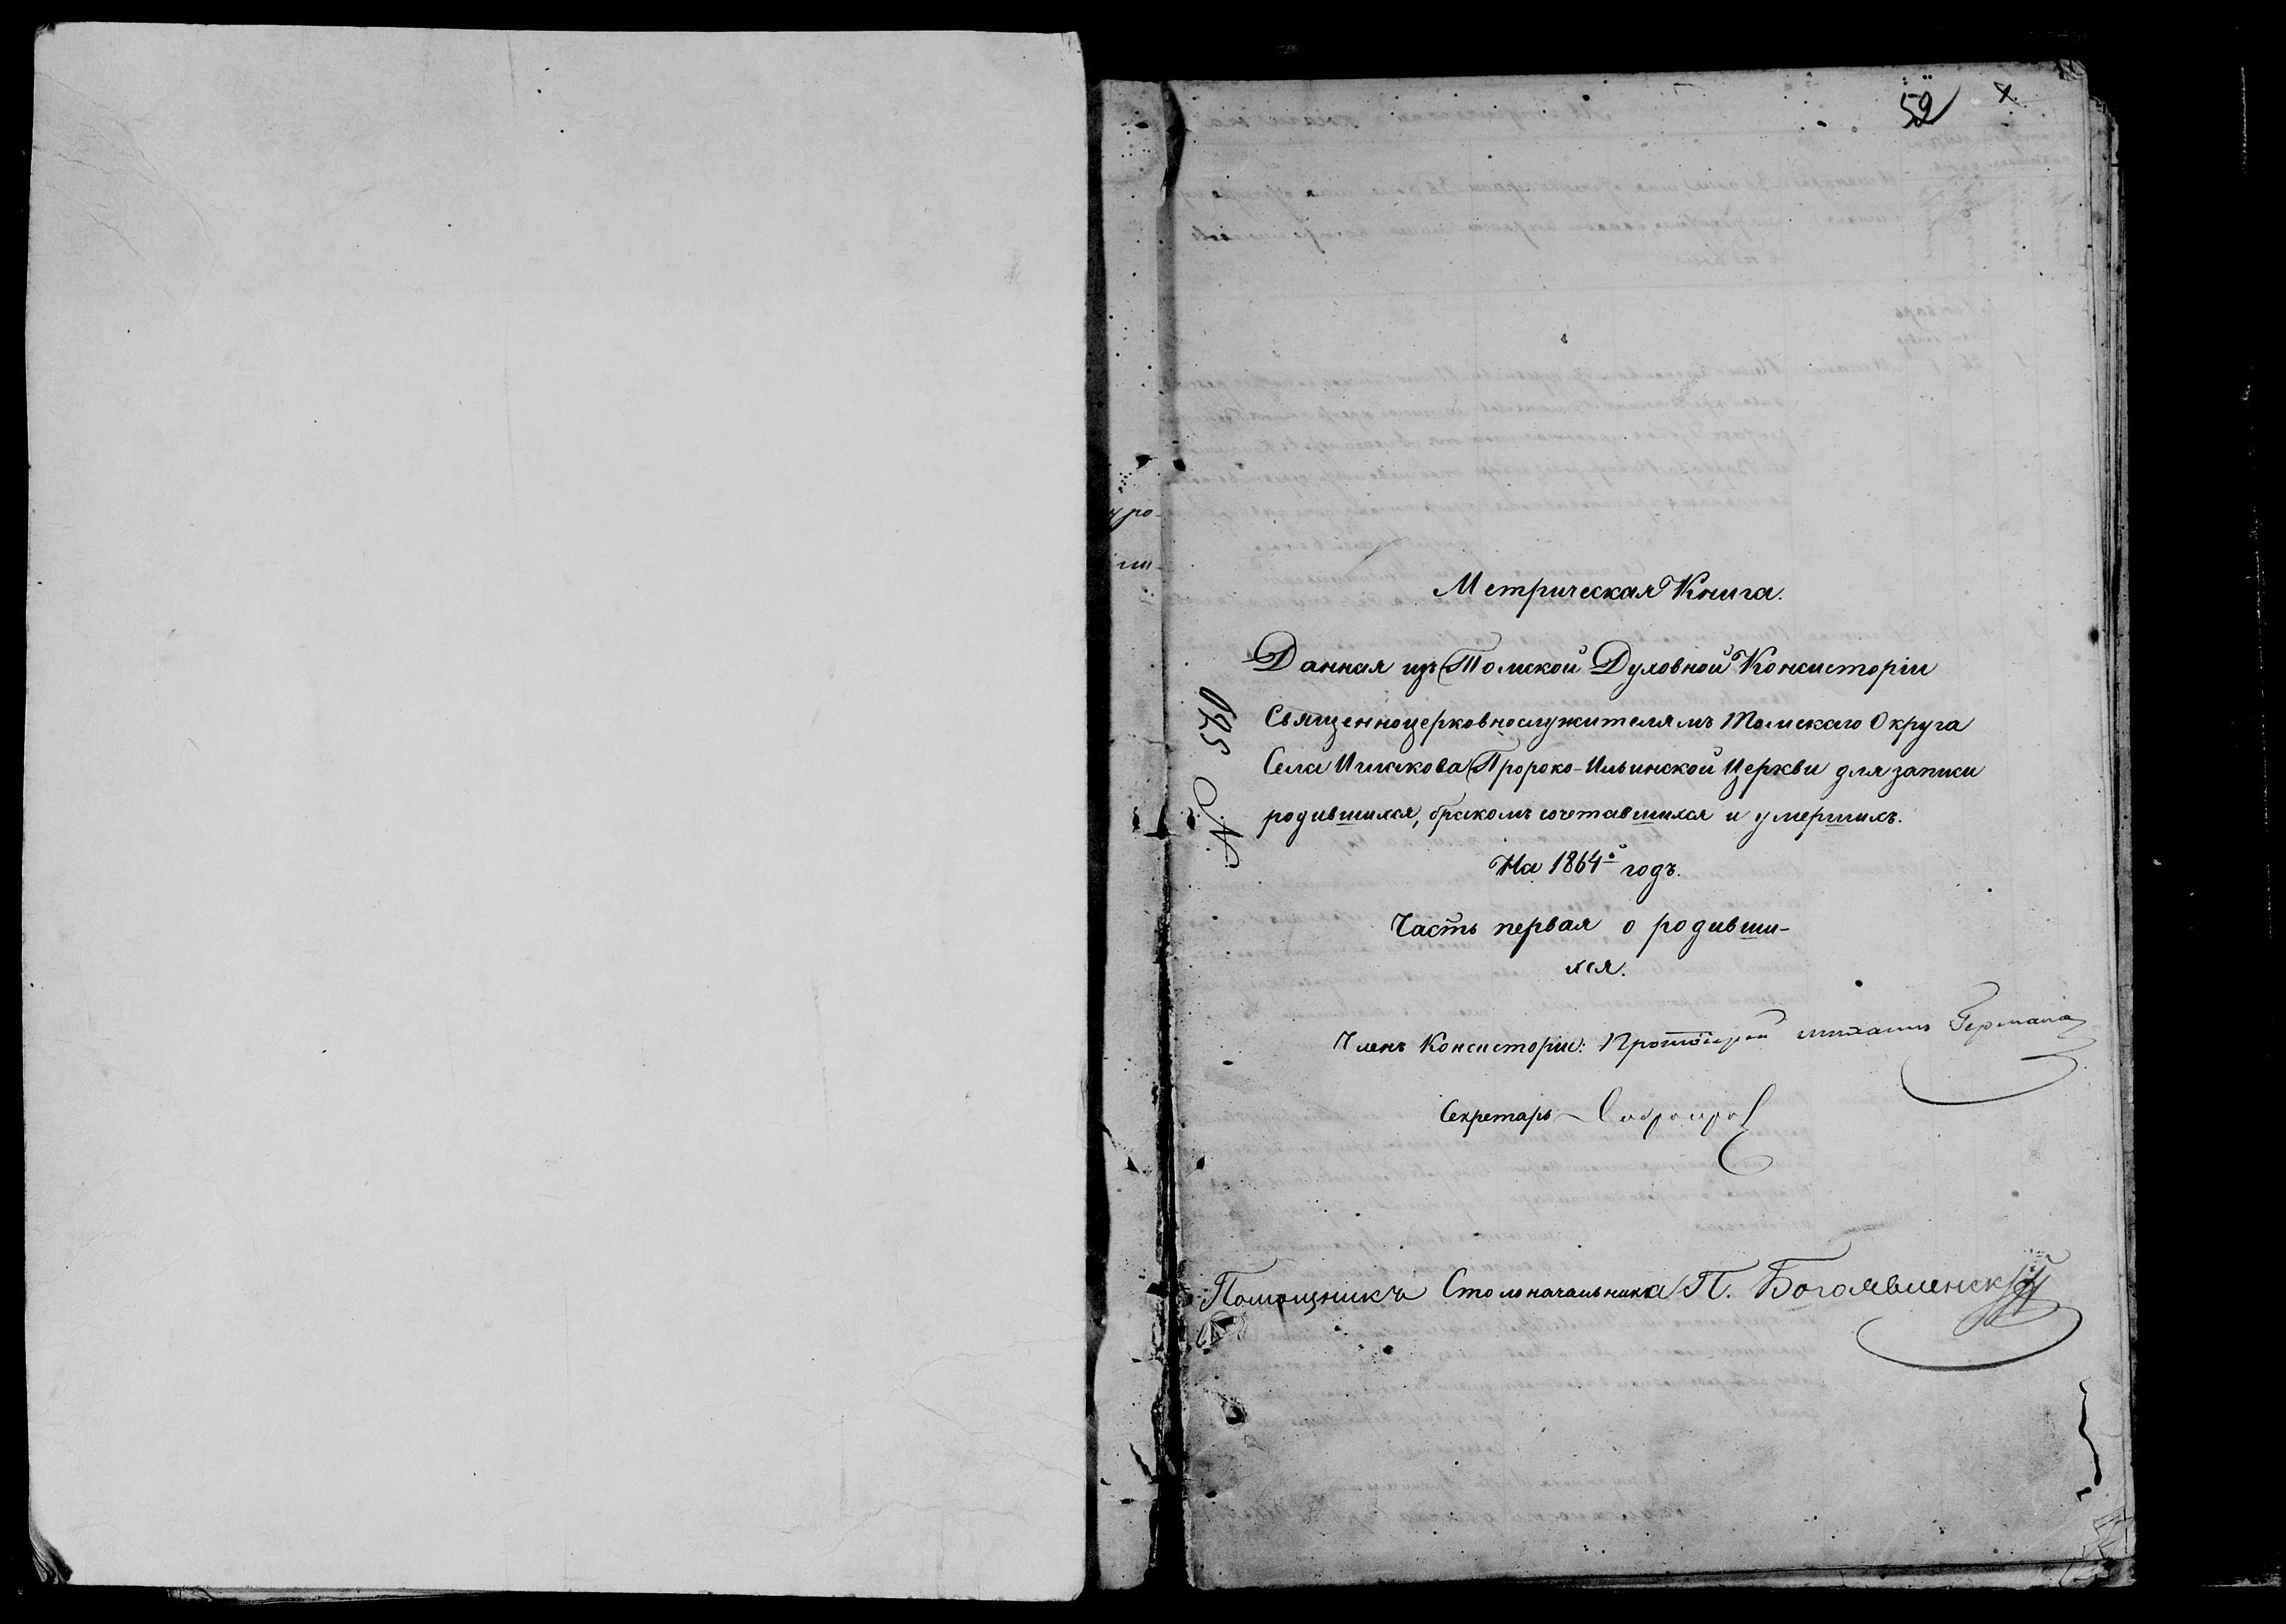 52
Метрическая Книга.
Данная изъ Томской Духовной Консисторіи
Священноцерковнослужителямъ Томскаго Округа
Села Ишакова Пророко-Ильинской Церкви для записи
родившихся, бракомъ сочетавшихся и умершихъ.
На 1864й годъ.
Часть первая о родивши-
хся.
Членъ Консисторіи: Протоіерей Михаилъ
Секретарь
Помощникъ Столоначальника П. Богоявленскій
№ 570